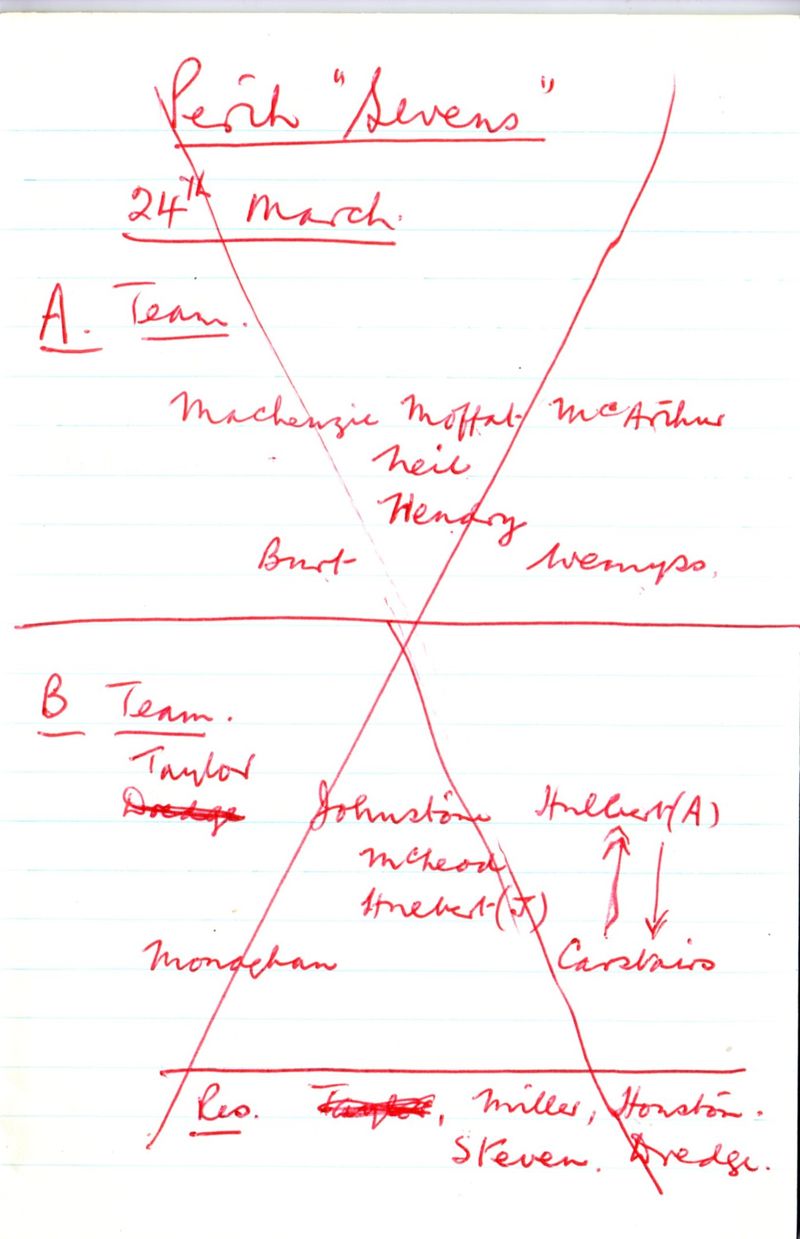 Perth "Sevens"
24TH March.
A. Team.
Mackenzie Moffat McArthur
Neil
Hendry
Burt Wemyss.
B Team.
Taylor
Dredge Johnston Hulbert (A)
McLeod
Hulbert (J)
Monaghan Carstairs
Res. Taylor, Miller, Houston.
Steven. Dredge.